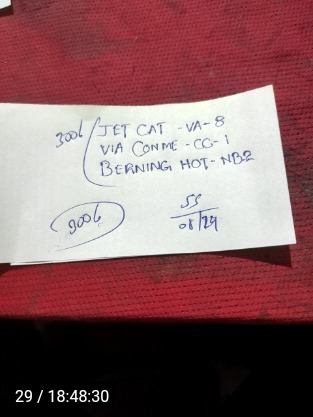 300L JET CAT - VA-8
VIA CONME - CG-1
BERNING HOT - NB-2
300L
SS
08/29
29 / 18:48:30